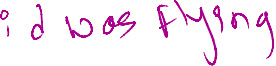 i d was flying